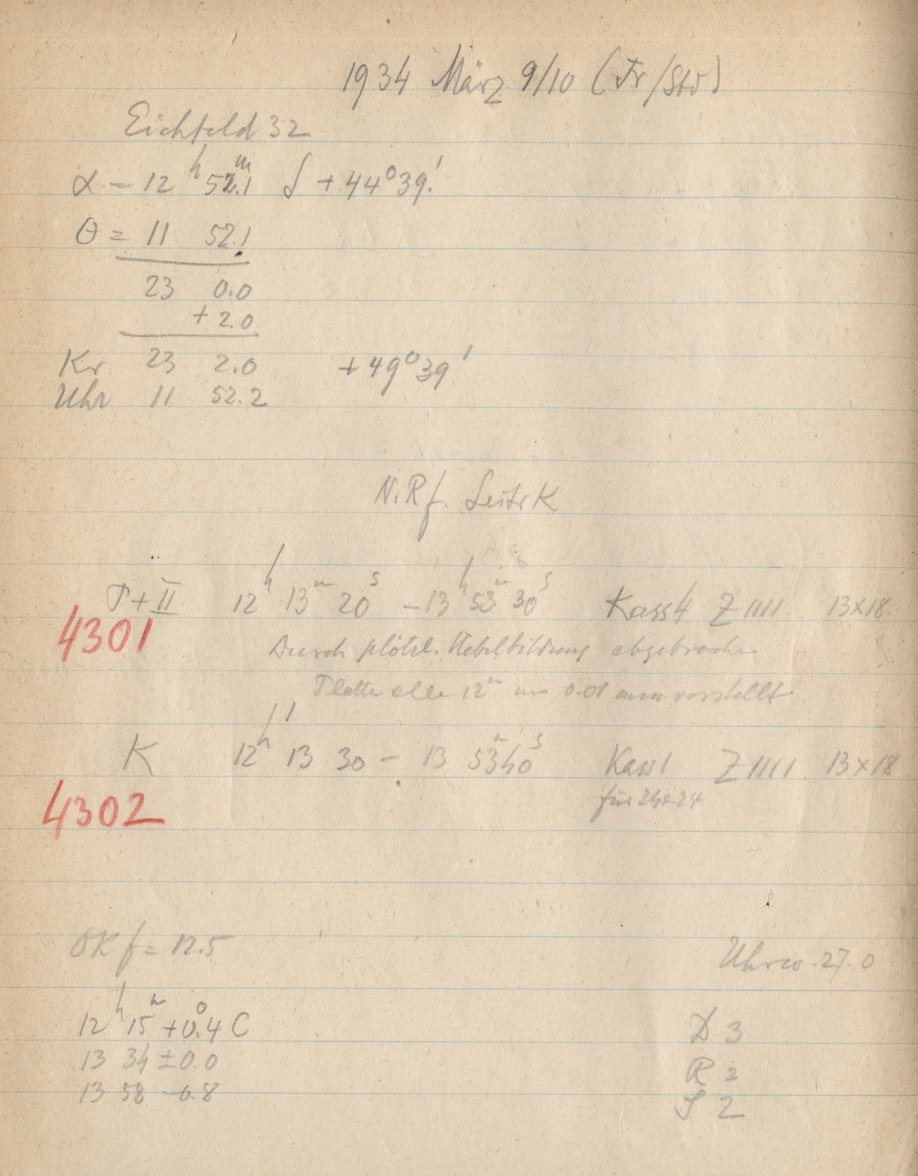 1934 März 9/10 (Fr/Stv)
Eichfeld 32
α = 12ʰ 52.1ᵐ δ + 44° 39.'
θ = 11 52.1
23 0.0
+ 2.0
Kr 23 2.0 + 49° 39'
Uhr 11 52.2
N. Rf. Leitr K
T + II 12ʰ 13ᵐ 20ˢ – 13ʰ 53ᵐ 30ˢ Kass 4 Z 1111 13×18
4301
Durch plötzl. Nebelbildung abgebrochen
Platte alle 12ᵐ um 0.01 mm verstellt
K 12ʰ 13 30 – 13 53ᵐ 40ˢ Kass 1 Z 1111 13×18
4302
für 24×24
OK f = 12.5 Uhrw. 27.0
12ʰ 15ᵐ + 0.4° C D 3
13 34 ± 0.0 R 2
13 58 – 0.8 S 2